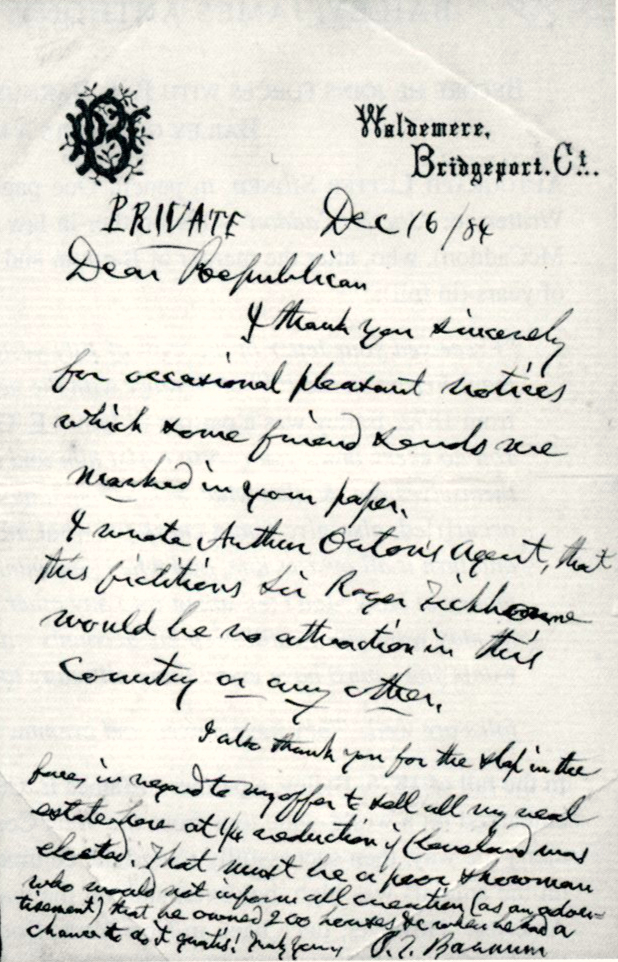 PB
Waldemere,
Bridgeport. Ct.
PRIVATE Dec 16/84
Dear Republican
I thank you sincerely
for occasional pleasant notices
which some friend sends me
marked in your paper.
I wrote Arthur Orton's agent, that
this fictitious Sir Roger Tichborne
would be no attraction in this
country or any other.
I also thank you for the slap in the
face, in regard to my offer to sell all my real
estate here at 1/4 reduction if Cleveland was
elected. That must be a poor showman
who would not inform all creation (as an adver-
tisement) that he owned 200 houses &c when he had a
chance to do it gratis! Truly yours P. T. Barnum